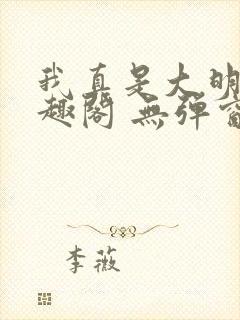 我真是大明
趣阁 無弹窗
李薇